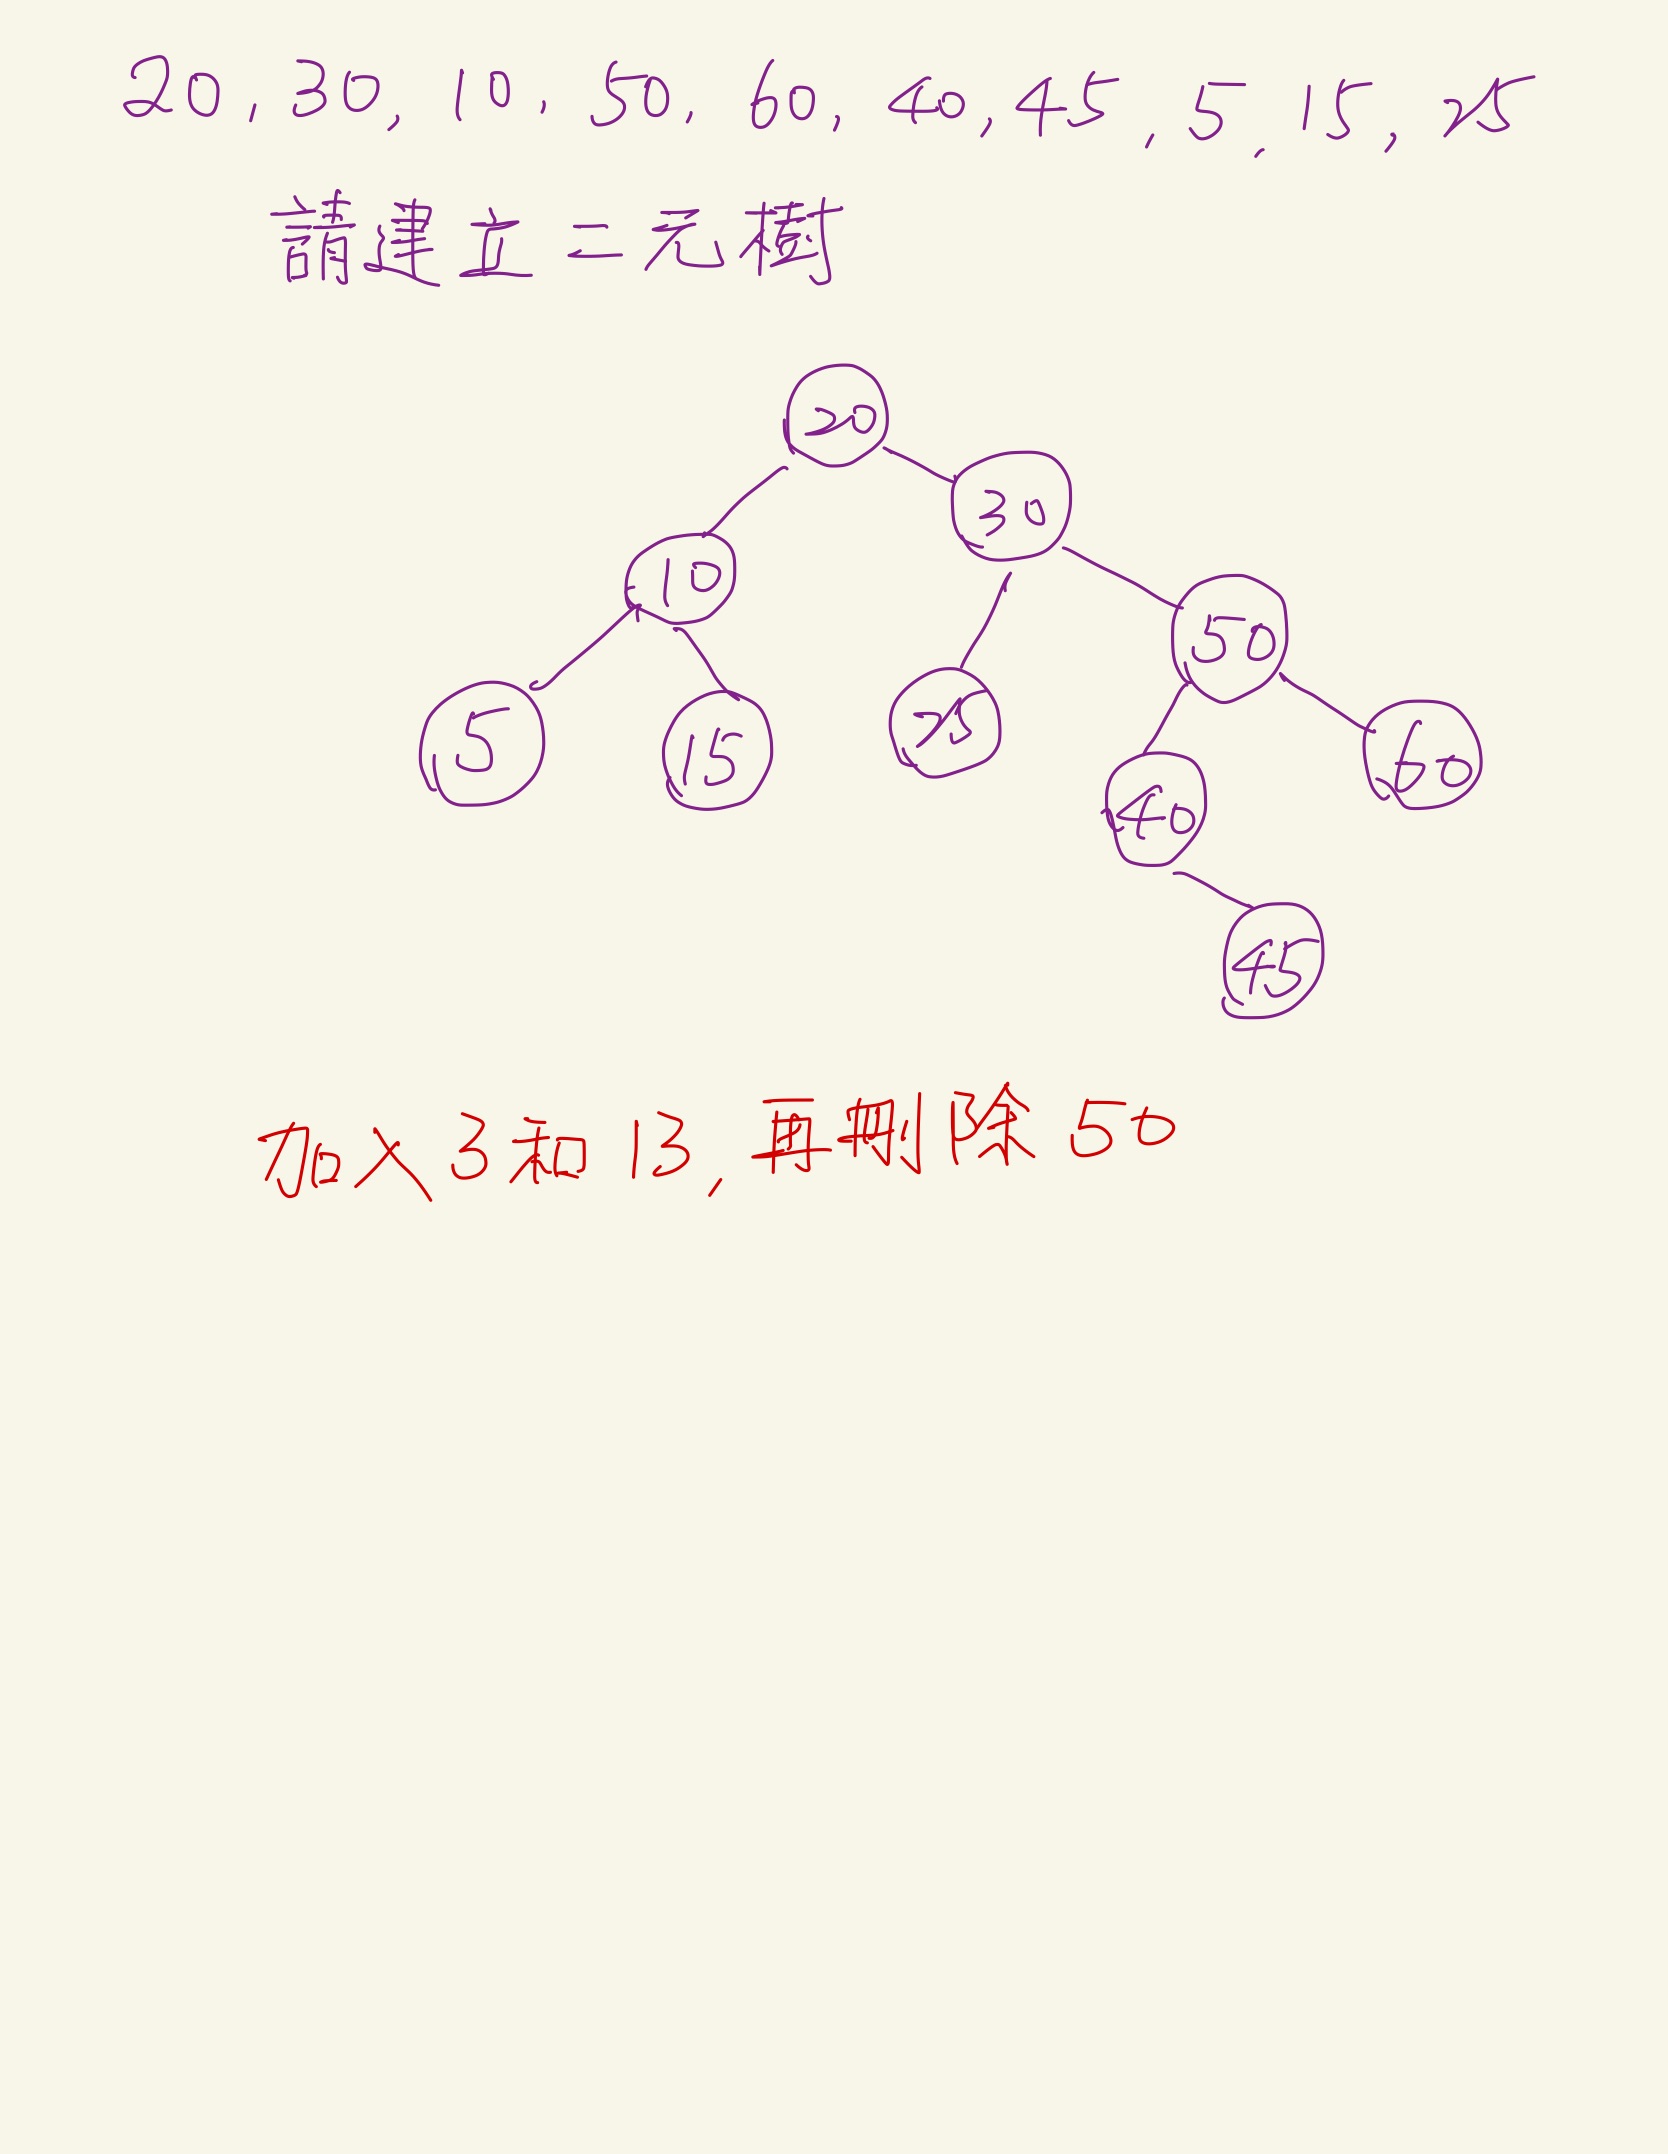 20, 30, 10, 50, 60, 40, 45, 5, 15, 25
請建立二元樹
20
30
10
50
5
15
25
60
40
45
加入3和13,再刪除50